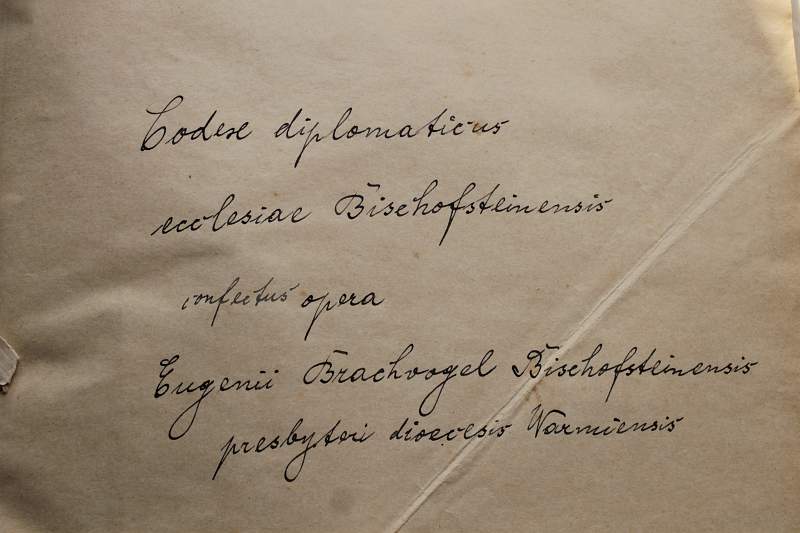 Codex diplomaticus
ecclesiae Bischofsteinensis
confectus opera
Eugenii Brachvogel Bischofsteinensis
presbyteri dioecesis Warmiensis